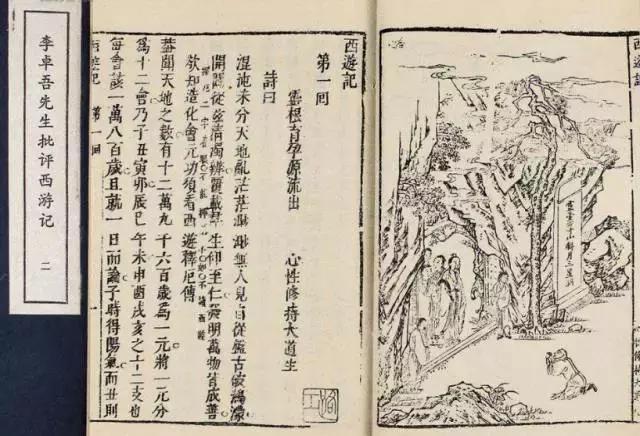 李卓吾先生批评西游记
二
西遊記
第一回
靈根育孕源流出 心性修持大道生
詩曰
混沌未分天地亂茫茫渺渺無人見自從盤古破鴻濛
開闢從茲清濁辨覆載羣生仰至仁發明萬物皆成善
欲知造化會元功須看西遊釋厄傳
釋厄二字着眼不能釋厄不如不讀西遊
蓋聞天地之數有十二萬九千六百歲為一元將一元分
為十二會乃子丑寅卯辰巳午未申酉戌亥之十二支也
每會該一萬八百歲且就一日而論子時得陽氣而丑則
西遊記 第一回
靈臺方寸山斜月三星洞